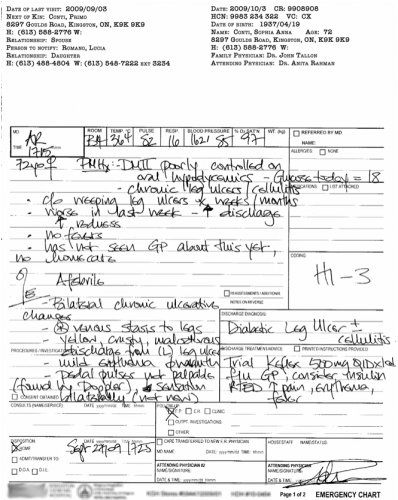 DATE OF LAST VISIT: 2009/09/03
NEXT OF KIN: CONTI, PRIMO
8297 GOULDS ROAD, KINGSTON, ON, K9K 9K9
H: (613) 588-2776 W:
RELATIONSHIP: SPOUSE
PERSON TO NOTIFY: ROMANO, LUCIA
RELATIONSHIP: DAUGHTER
H: (613) 488-4804 W: (613) 548-7222 EXT 3234
DATE: 2009/10/3 CR: 9908908
HCN: 9983 234 322 VC: CX
DATE OF BIRTH: 1937/04/19
NAME: CONTI, SOPHIA ANNA AGE: 72
8297 GOULDS ROAD, KINGSTON, ON, K9K 9K9
H: (613) 588-2776 W:
FAMILY PHYSICIAN: DR. JOHN TALLON
ATTENDING PHYSICIAN: DR. ANITA RAHMAN
MD ROOM TEMP. °C PULSE RESP. BLOOD PRESSURE % O2 SAT'N WT (Kg) REFERRED BY MD
TIME 1715 364 82 16 162/85 97 NAME:
72yo ♀ PMHx: DMII poorly controlled on
ALLERGIES: NONE
oral hypoglycemics - Glucose today = 18
- chronic leg ulcers/cellulitis
MEDICATIONS LIST ATTACHED
- c/o weeping leg ulcers x weeks/months
- worse in last week - ↑ discharge
↑ redness
- no fevers
- has not seen GP about this yet,
no homecare
CODING
H1-3
O/E
Afebrile
READER/TESTS / ADDITIONAL
NOTES ON REVERSE
- Bilateral chronic ulcerative
changes
DISCHARGE DIAGNOSIS:
- venous stasis to legs
Diabetic Leg Ulcer ± cellulitis
- yellow, crusty, malodorous
PROCEDURES / INVESTIGATIONS
discharge from (L) leg ulcer
DISCHARGE / TREATMENT PRINTED INSTRUCTIONS PROVIDED
- mild erythema
Trial Keflex 500mg QID x10d
- pedal pulses not palpable
F/u GP, consider insulin
(found by Doppler) ↓ sensation
RTED ↑ pain, erythema,
CONSENT OBTAINED
bilaterally (not new)
fever
CONSULTS (NAME/SERVICE) DATE yyyy/mm/dd TIME hh:mm
FOLLOW-UP
F.P. CH CLINIC
OUTPT. INVESTIGATIONS
OTHER
DISPOSITION DATE yyyy/mm/dd TIME hh:mm
HOME 1725
ADMIT/TRANSFER TO
D.O.A. D.I.E.
CARE TRANSFERRED TO NEW ER PHYSICIAN
MD NAME DATE yyyy/mm/dd TIME hh:mm
ATTENDING PHYSICIAN #2
NAME/SIGNATURE
DATE & TIME
HOUSESTAFF NAME/STATUS
ATTENDING PHYSICIAN
NAME/SIGNATURE
DATE & TIME
Page 1 of 2 EMERGENCY CHART